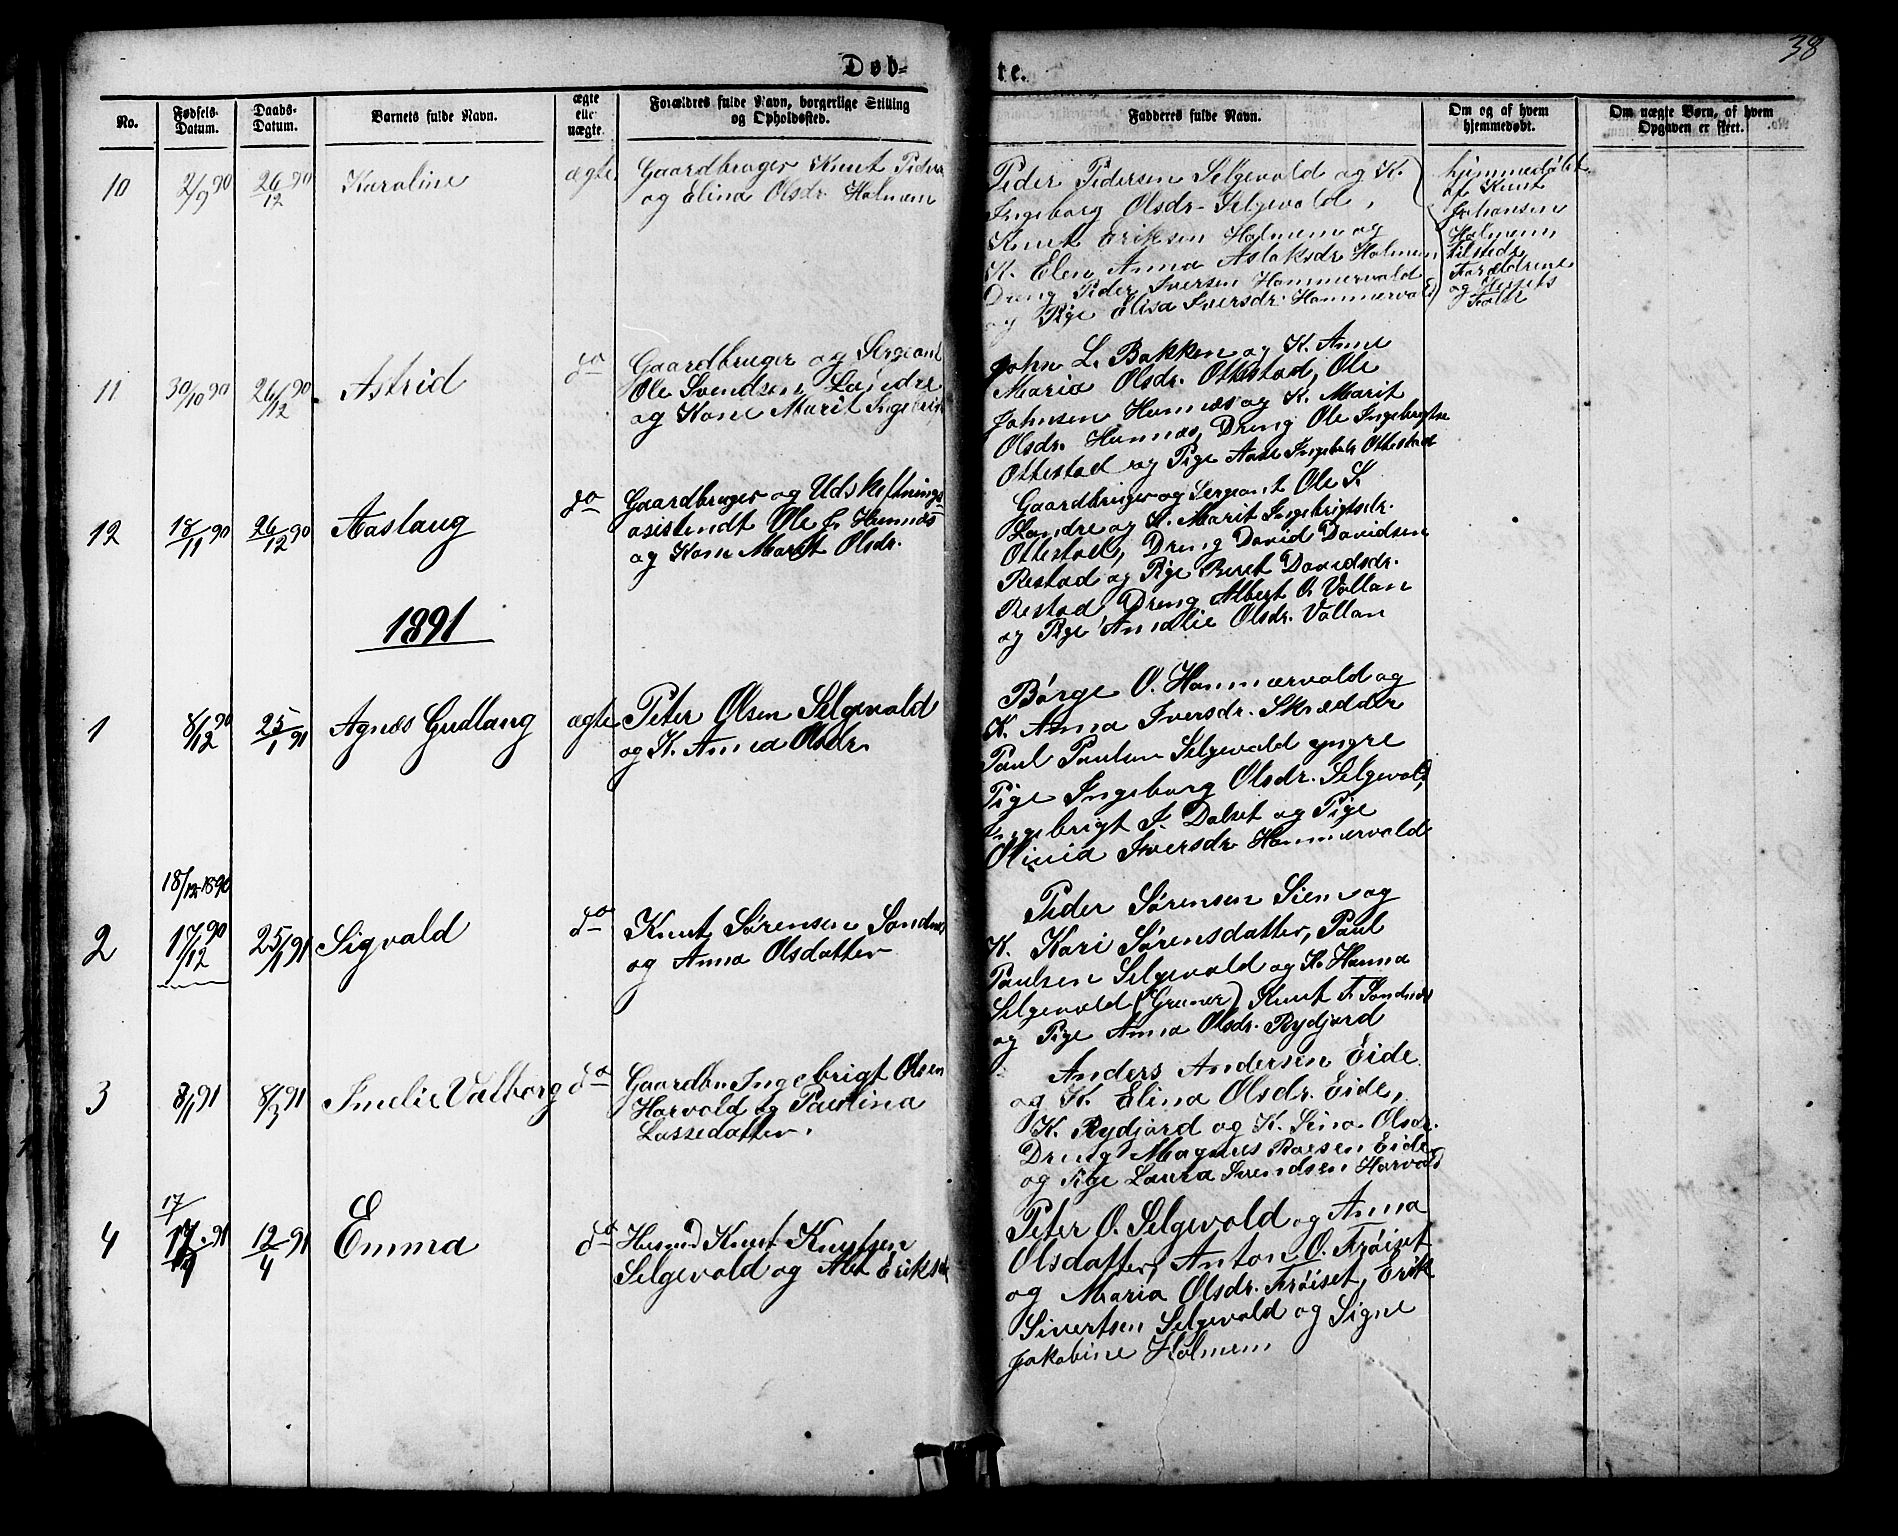 38
Døb- te.
No. Fødsels-Datum. Daabs-Datum. Barnets fulde Navn. ægte eller uægte. Forældres fulde Navn, borgerlige Stilling og Opholdssted. Faddernes fulde Navn. Om og af hvem hjemmedøbt. Om uægte Børn, af hvem Opgaven er skeet.
10 2/9 90 26/12 90 Karoline ægte
Gaardbruger Knut Peders
og Elina Olsdr. Holmem
Peder Pedersen Selgevold og K.
Ingeborg Olsdr. Selgevold,
Knut Eriksen Holmem og
K. Elen Anna Aslaksdr. Holmem
Dreng Peder Iversen Hammervold
og Pige Elisa Iversdr. Hammervold
hjemmedøbt
af Knut
Johansen
Holmem
tilstede
Forældrene
og Husets
Folk
11 30/10 90 26/12 90. Astrid do
Gaardbruger og Sergeant
Ole Svendsen Landre
og Kone Marit Ingebrigt
John L. Bakken og K. Anne
Maria Olsdr. Ottestad, Ole
Johnsen Hunnæs og K. Marit
Olsdr. Hunnæs, Dreng Ole Ingebrigtsen
Ottestad og Pige Ingebor Ottestad
12 18/11 90 26/12 90 Aaslaug do
Gaardbruger og Udskiftnings-
asistendt Ole J. Hunnæs
og Kone Marit Olsdr.
Gaardbruger og Sergeant Ole S.
Landre og K. Marit Ingebrigtsdr.
Ottestad, Dreng David Davidsen
Restad og Pige Beret Davidsdr.
Restad, Dreng Albert O. Vollan
og Pige Amalie Olsdr. Vollan
1891
1 8/12 90 25/1 91 Agnes Gudlaug ægte
Peter Olsen Selgevold
og K. Anna Olsdr.
Børge O. Hammervold og
K. Anna Iversdr. Skrædder
Paul Paulsen Selgevold yngre
Pige Ingeborg Olsdr. Selgevold,
Ingebrigt I. Dalset og Pige
Olivia Iversdr. Hammervold
18/12 1890
2 17/12 90 25/1 91 Sigvald do
Knut Sørensen Sandnes
og Anna Olsdatter
Peder Sørensen Siem og
K. Kari Sørensdatter, Paul
Paulsen Selgevold og K. Hanna
Selgevold (Gruner), Knut F. Sandnes
og Pige Anna Olsdr. Rydjord
3 8/1 91 8/3 91 Imelie Valborg do
Gaardbr. Ingebrigt Olsen
Harvold og Paulina
Lassedatter.
Anders Andersen Eide
og K. Elina Olsdr. Eide,
K. Rydjord og K. Sina Olsdr.
Dreng Magnus Eide
og Pige Laura Svendsen Harvold
17/
4 17 91 12/4 91 Emma do
Husmd Knut Knutsen
Selgevold og Alet Eriksdr
Peter O. Selgevold og Anna
Olsdatter, Anton O. Frøiset
og Maria Olsdr. Frøiset, Erik
Sivertsen Selgevold og Signe
Jakobine Holmem